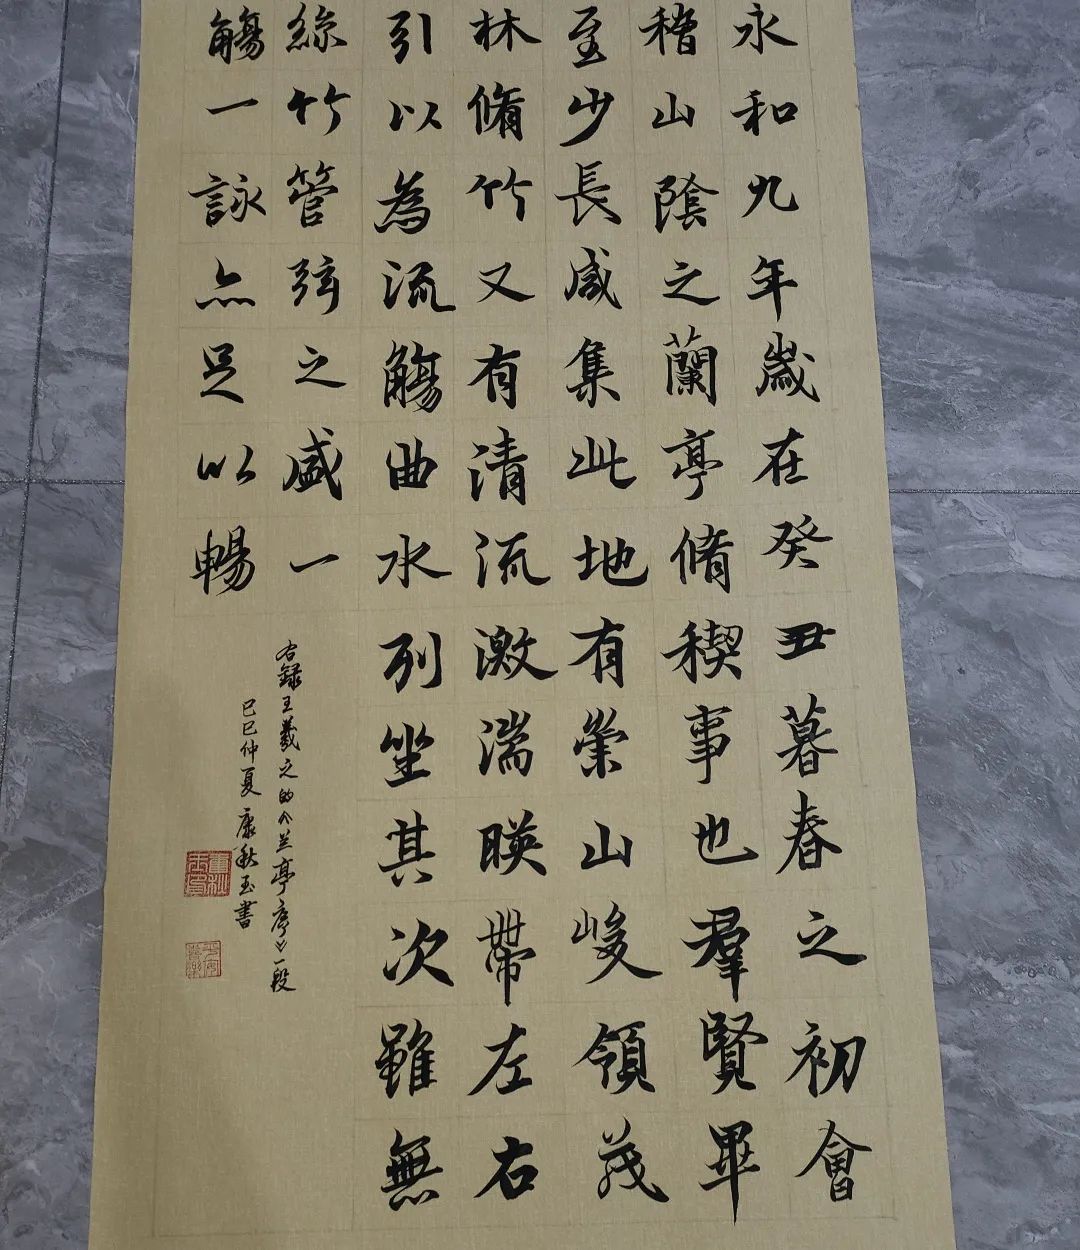 永和九年歲在癸丑暮春之初會
稽山陰之蘭亭脩稧事也羣賢畢
至少長咸集此地有崇山峻領茂
林脩竹又有清流激湍暎帶左右
引以為流觴曲水列坐其次雖無
絲竹管弦之盛一
觴一詠亦足以暢
右録王羲之的《兰亭序》一段
己巳仲夏康秋玉書